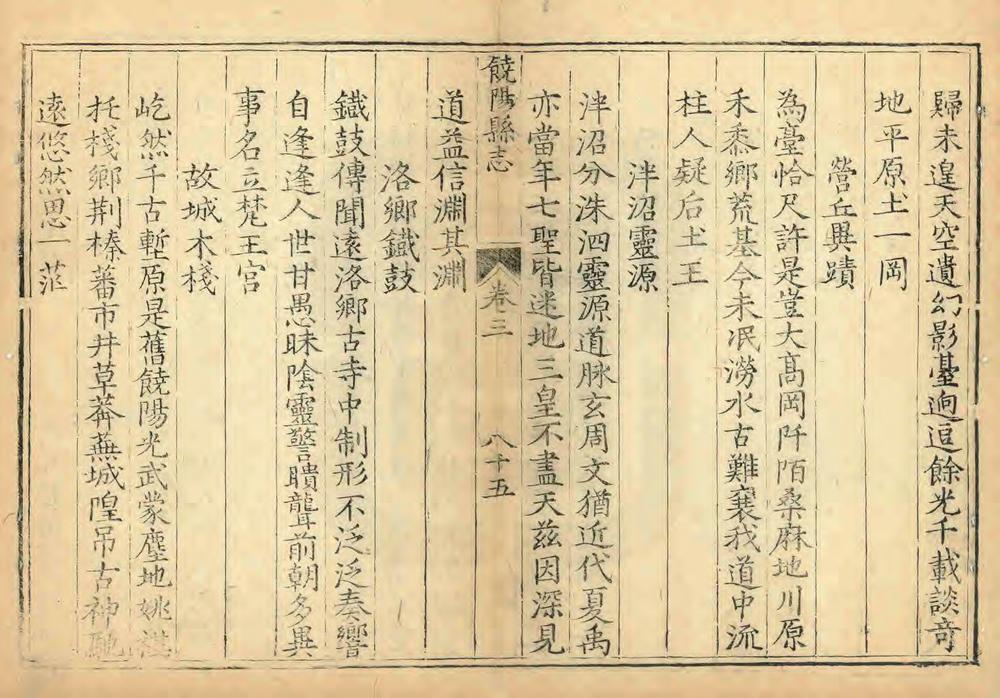 歸未遑天空遺幻影臺逈逗餘光千載談竒
地平原土一岡
營丘異蹟
為臺恰尺許是豈大髙岡阡陌桑麻地川原
禾黍鄉荒基今未泯澇水古難襄我道中流
柱人疑后土王
泮沼靈源
泮沼分洙泗靈源道脉玄周文猶近代夏禹
亦當年七聖皆迷地三皇不盡天兹因深見
饒陽縣志
卷三
八十五
道益信淵其淵
洛鄉鐵鼓
鐵鼓傳聞遠洛鄉古寺中制形不泛泛奏響
自逢逢人世甘愚昧陰靈警聵聾前朝多異
事名立梵王宮
故城木棧
屹然千古塹原是舊饒陽光武蒙塵地姚
托棧鄉荊榛蕃市井草莽蕪城隍吊古神馳
遠悠然思一茫